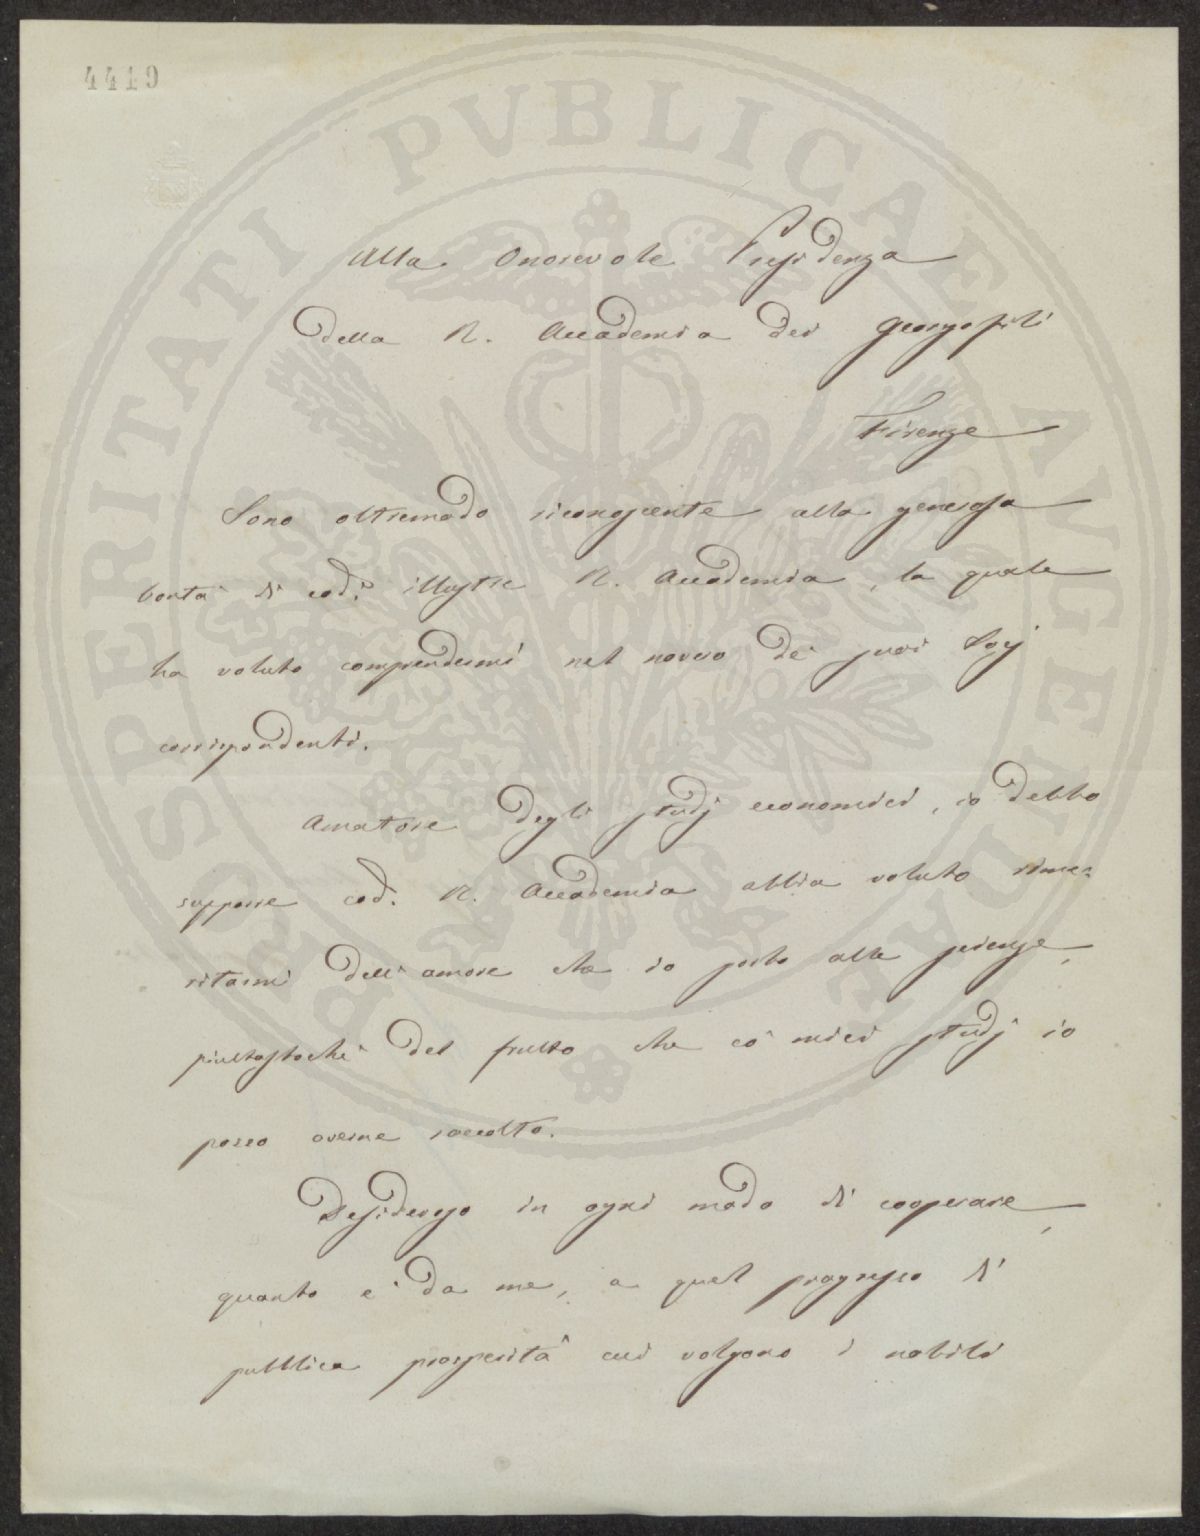 4419
PROSPERITATI PVBLICAE AVGENDAE
Alla Onorevole Presidenza
della R. Accademia dei Georgofili
Firenze
Sono oltremodo riconoscente alla generosa
bontà di cod.ª illustre R. Accademia, la quale
ha voluto comprendermi nel novero de' suoi Socj
corrispondenti.
Amatore degli studj economici, io debbo
supporre cod. R. Accademia abbia voluto rime-
ritarmi dell'amore che io porto alle scienze,
piuttostochè del frutto che co' miei studj io
posso averne raccolto.
Desideroso in ogni modo di cooperare,
quanto è da me, a quel progresso di
pubblica prosperità cui volgono i nobili